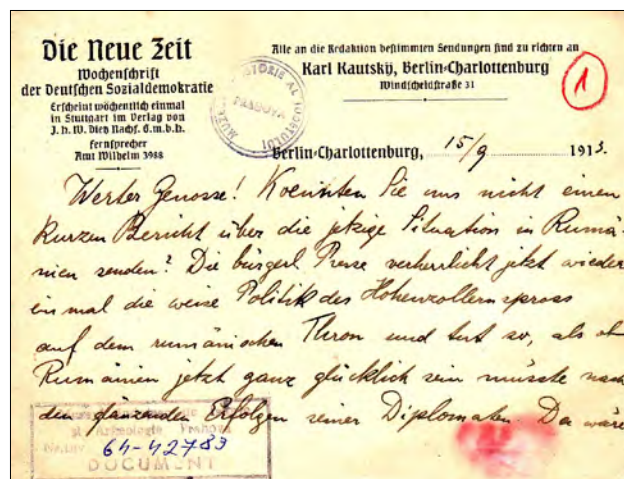 Die Neue Zeit
Wochenschrift
der Deutschen Sozialdemokratie
Erscheint wöchentlich einmal
in Stuttgart im Verlag von
J. H. W. Dietz Nachf. G.m.b.H.
Fernsprecher
Amt Wilhelm 3988
Alle an die Redaktion bestimmten Sendungen sind zu richten an
Karl Kautsky, Berlin-Charlottenburg
Windscheidstraße 31
1
PRAHOVA
Berlin-Charlottenburg, 15/9 1913.
Werter Genosse! Koennten Sie uns nicht einen
kurzen Bericht über die jetzige Situation in Rumä-
nien senden? Die bürgerl Presse verherrlicht jetzt wieder
einmal die weise Politik des Hohenzollernspross
auf dem rumänischen Thron und tut so, als ob
Rumänien jetzt ganz glücklich sein müsste nach
den glänzenden Erfolgen seiner Diplomaten. Da wäre
Arheologie Prahova
64-42783
DOCUMENT